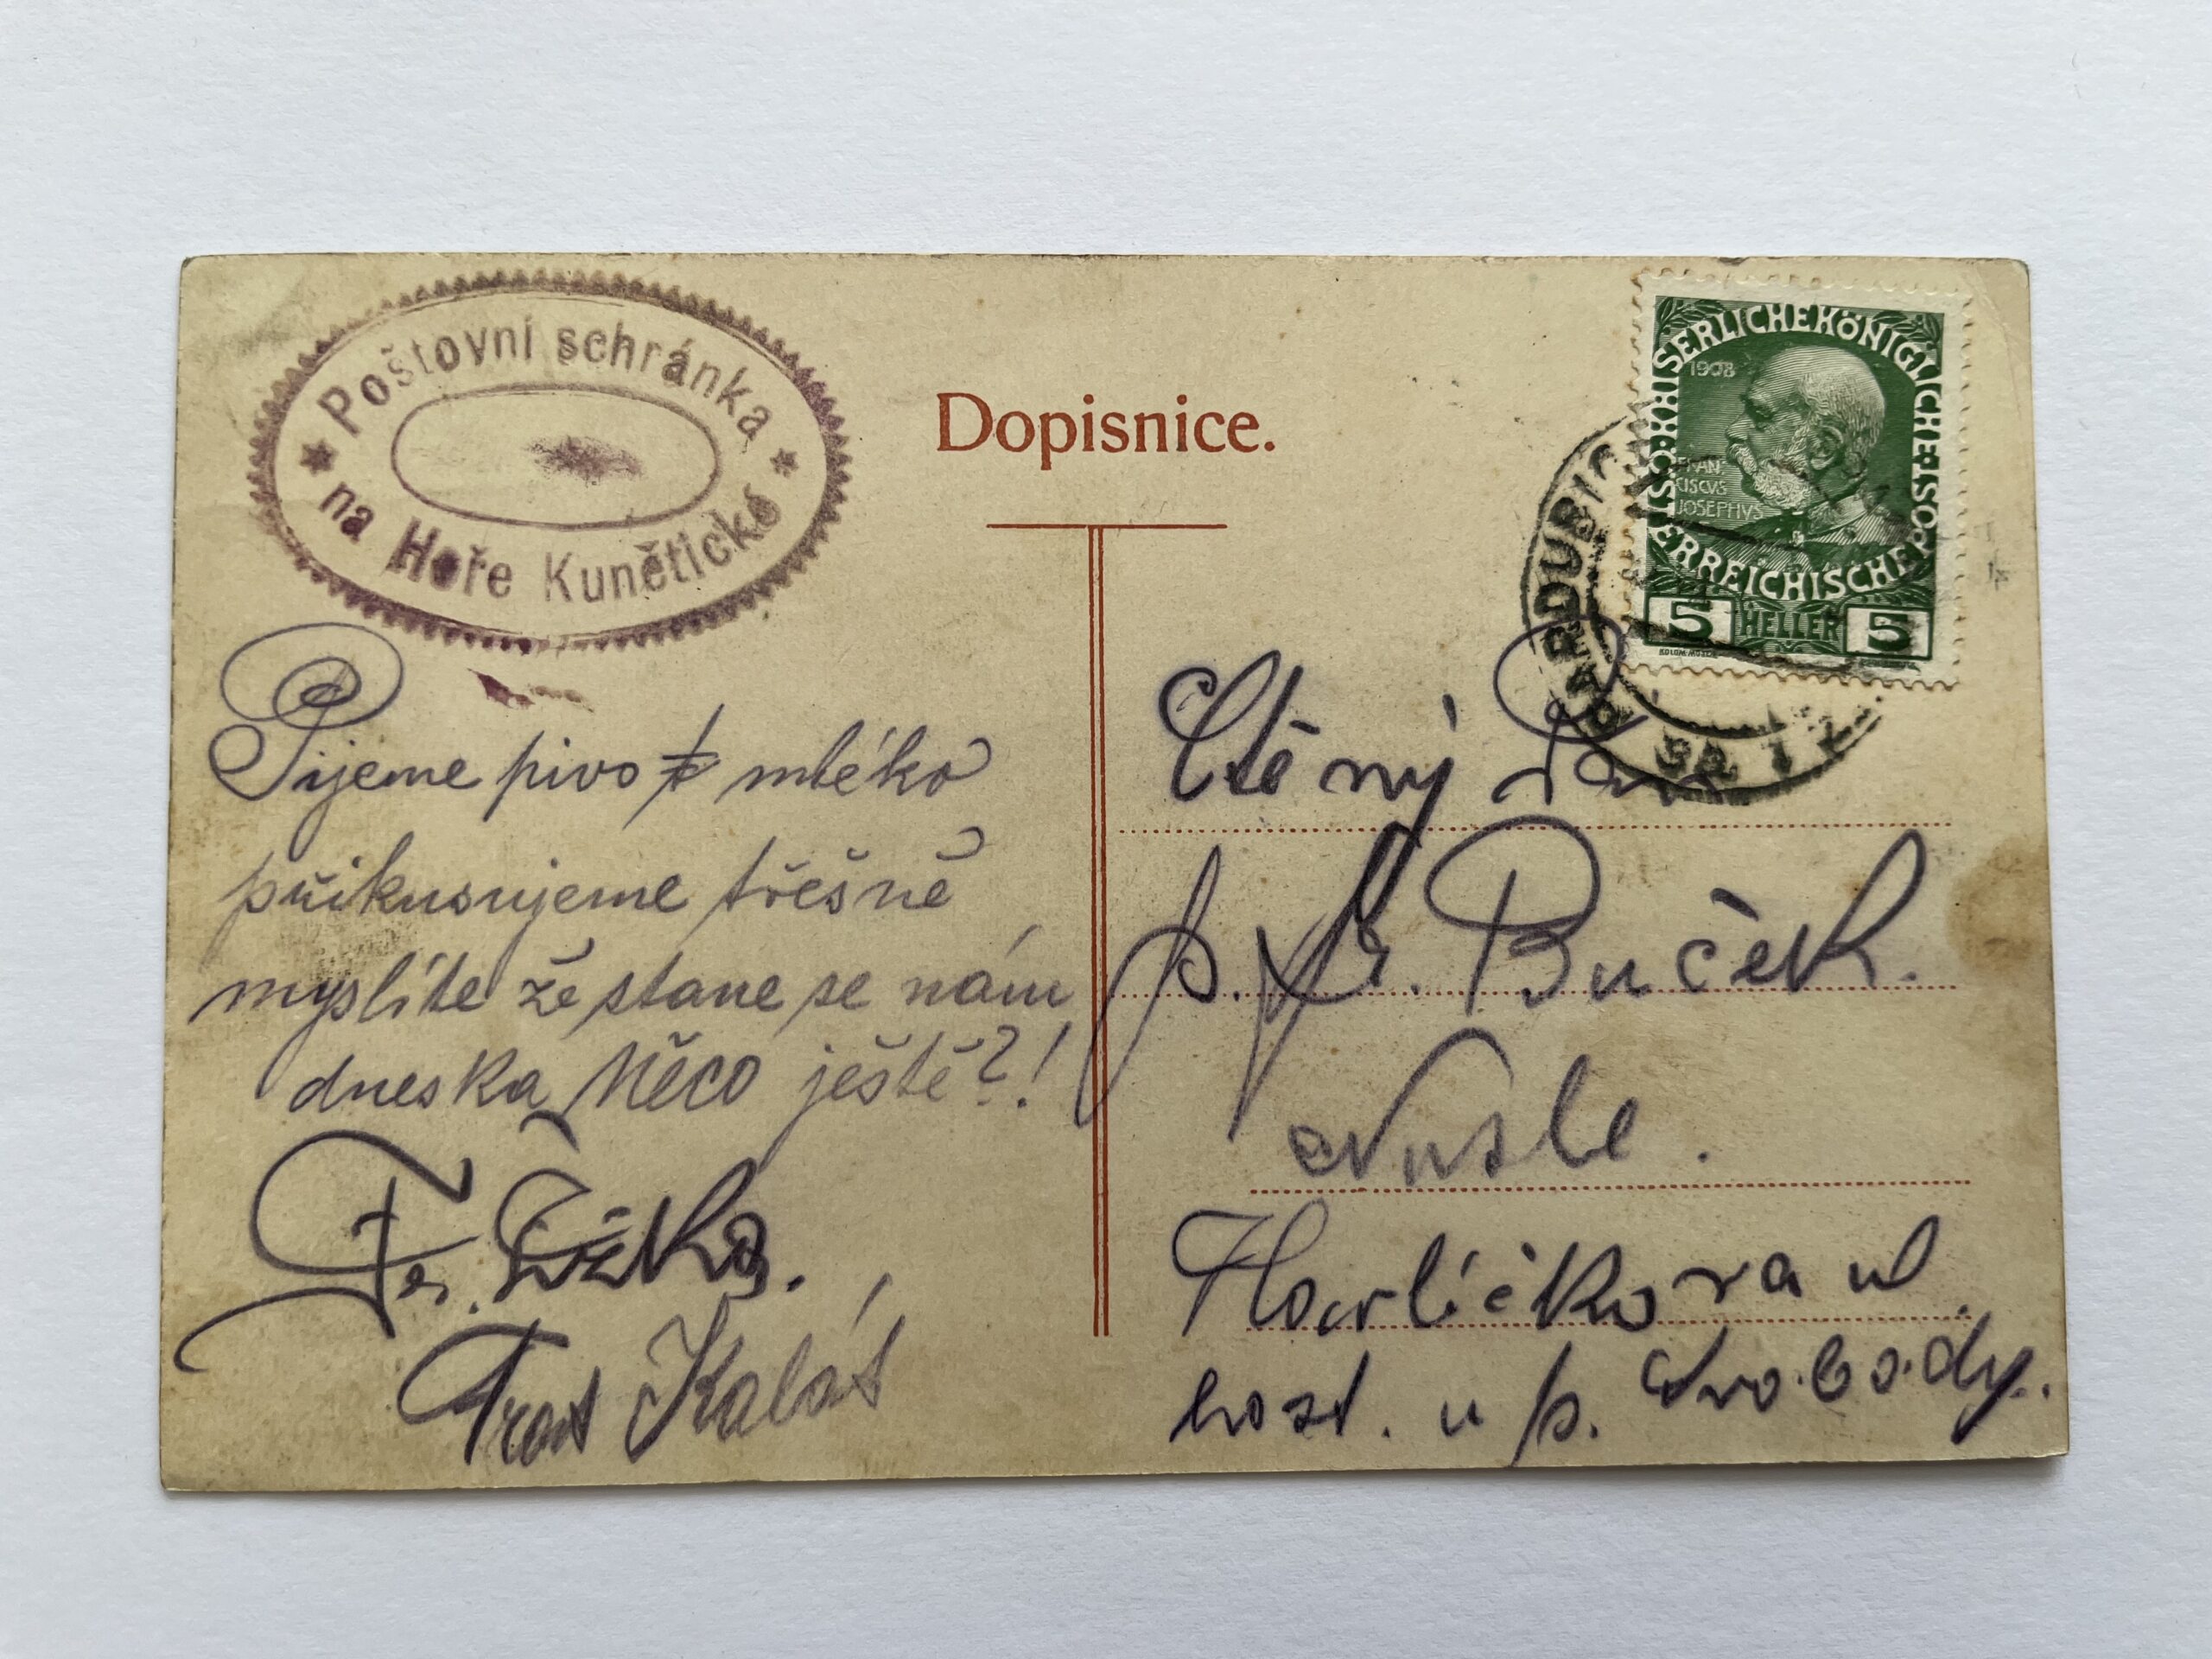 Poštovní schránka
na Hoře Kunětické
Dopisnice.
KAISERLICHE KÖNIGLICHE ÖSTERREICHISCHE POST
1908
FRAN-
CISCVS
JOSEPHVS
5 HELLER 5
PARDUBICE
Pijeme pivo mléko
přikusujeme třešně
myslíte že stane se nám
dneska něco ještě?!
Fr. Čížka.
Frant Kaláš
Ctěný Pan
p. Buček.
Nusle.
Havlíčkova ul.
host. u p. Svobody.